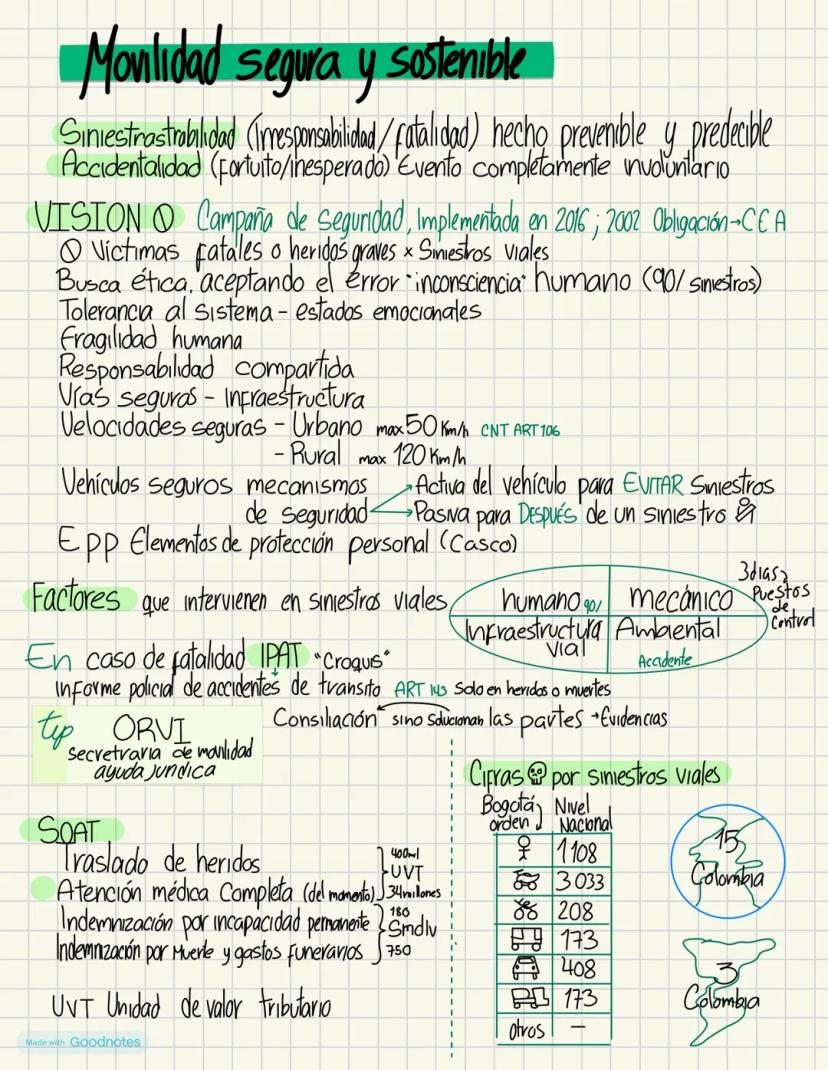 Movilidad segura y sostenible
Siniestrastrabilidad (Irresponsabilidad/fatalidad) hecho prevenible y predecible
Accidentalidad (Fortuito/inesperado) Evento completamente involuntario
VISION 0 Campaña de Seguridad, Implementada en 2016; 2002 Obligación→CEA
0 Víctimas fatales o heridos graves x Siniestros viales
Busca ética, aceptando el error "inconsciencia" humano (90/ siniestros)
Tolerancia al sistema - estados emocionales
Fragilidad humana
Responsabilidad compartida
Vías seguras - Infraestructura
Velocidades seguras - Urbano max 50 Km/h CNT ART 106
- Rural max 120 Km/h
Vehículos seguros mecanismos de seguridad
→ Activa del vehículo para EVITAR Siniestros
→ Pasiva para DESPUÉS de un siniestro
Epp Elementos de protección personal (Casco)
Factores que intervienen en siniestros viales
humano 90/
mecánico
Infraestructura vial
Ambiental
Accidente
3 dias
Puestos
de
Control
En caso de fatalidad IPAT "Croquis"
informe policial de accidentes de transito ART 143 Solo en heridos o muertes
Consiliación sino Solucionan las partes → Evidencias
tip ORVI
secretraria de movilidad
ayuda juridica
SOAT
Traslado de heridos
Atención médica Completa (del momento)
400ml
UVT
34millones
Indemnización por incapacidad permanente
Indemnización por Muerte y gastos funerarios
180
Smdlv
750
UVT Unidad de valor tributario
Cifras por siniestros viales
Bogotá
orden
Nivel
Nacional
1108
3033
208
173
408
173
otros —
15
Colombia
3
Colombia
Made with Goodnotes